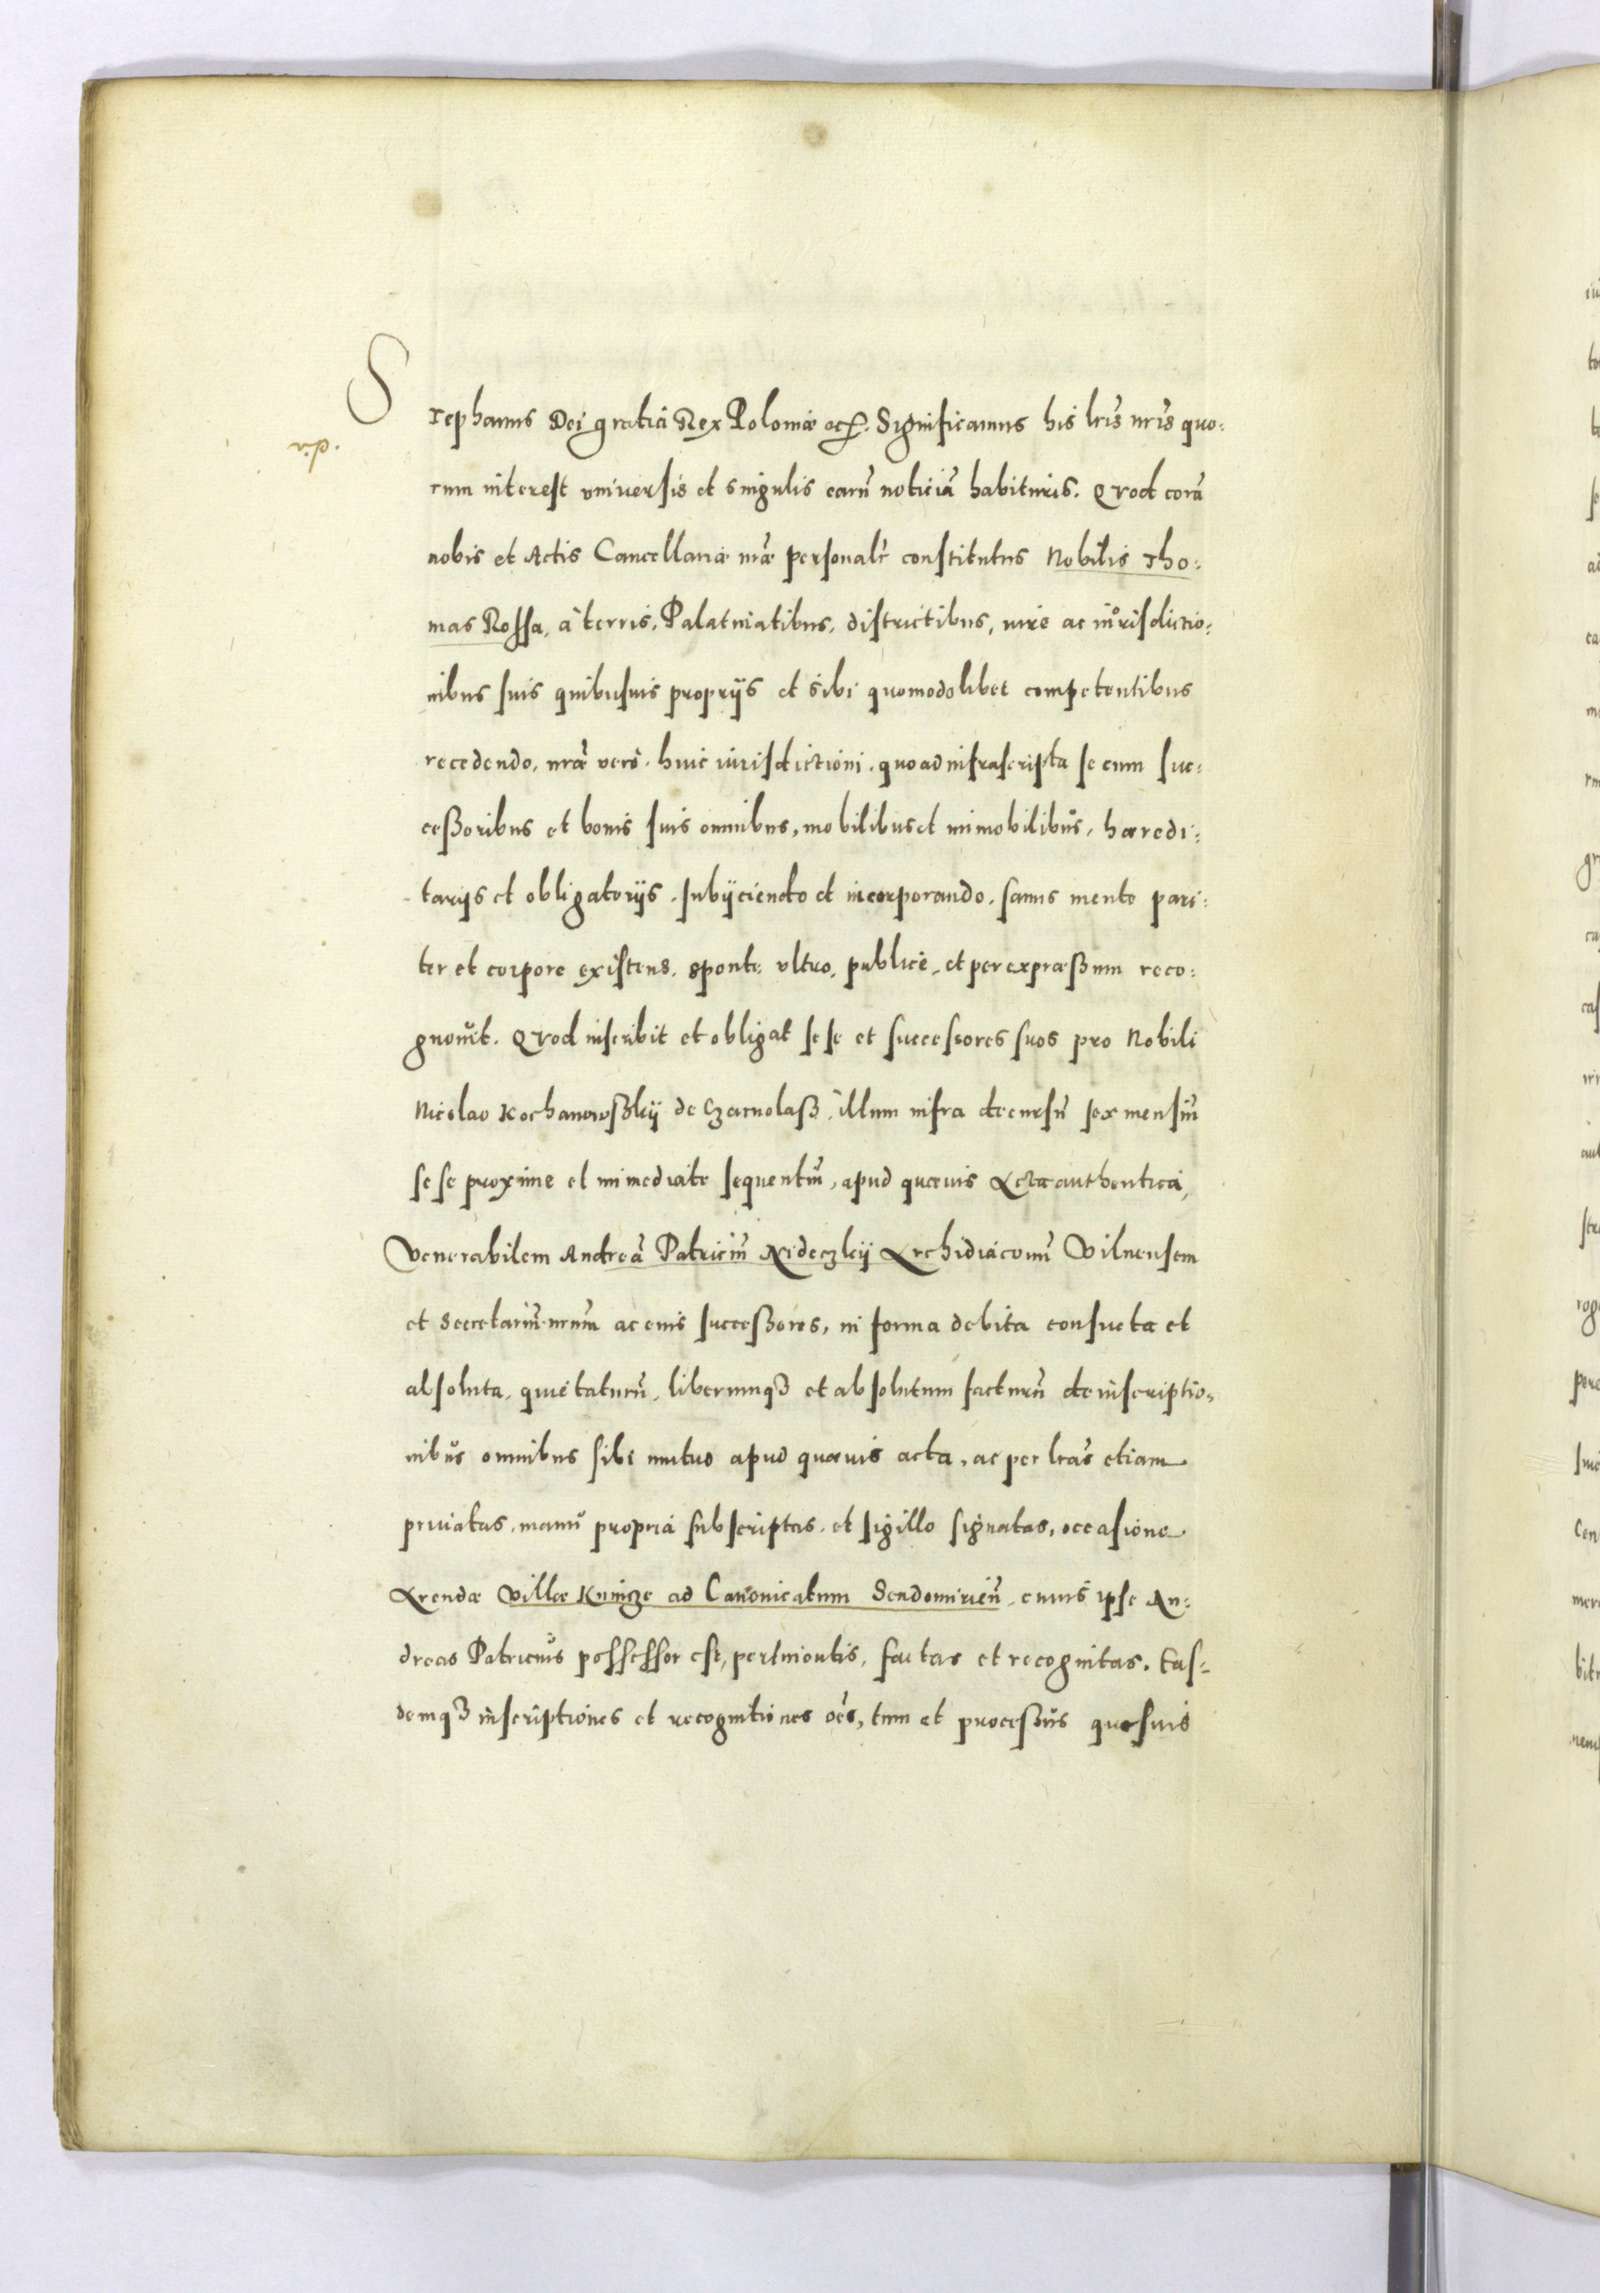 Stephanus Dei gratia Rex Poloniæ etc. Significamus his lris nris quo:
rum interest vniuersis et singulis earũ noticiã habituris. Quod corã
nobis et Actis Cancellariæ nræ personalr constitutus Nobilis Tho:
mas Rossa, à terris, Palatinatibus, districtibus, iure ac iurisdictio:
nibus suis quibusuis proprijs et sibi quomodolibet competentibus
recedendo, nræ vero huic iurisdictioni, quoad infrascripta se cum suc:
ceßoribus et bonis suis omnibus, mobilibus et immobilibus, hæredi:
tarijs et obligatorijs, subijciendo et incorporando, sanus mente pari:
ter et corpore existens, sponte, vltro, publicè, et per expræßum reco:
gnouit. Quod inscribit et obligat sese et successores suos pro Nobili
Nicolao Kochanowßkij de Czarnolaß, illum infra decursũ sex mensiũ
sese proxime et immediate sequentiũ, apud quæuis Acta authentica,
Venerabilem Andreã Patriciũ Nideczkij Archidiaconũ Vilnensem
et Secretariũ nrum ac eius succeßores, in forma debita consueta et
absoluta, quietaturũ, liberumqȝ et absolutum facturũ de inscriptio:
nibus omnibus sibi mutuo apud quæuis acta, ac per lras etiam
priuatas, manu propria subscriptas, et sigillo signatas, occasione
Arendæ Villæ Kunicze ad Canonicatum Sendomirieñ, cuius ipse An:
dreas Patricius possessor est, pertinentis, factas et recognitas, eas:
demqȝ inscriptiones et recognitiones oẽs, tum et proceßus quosuis